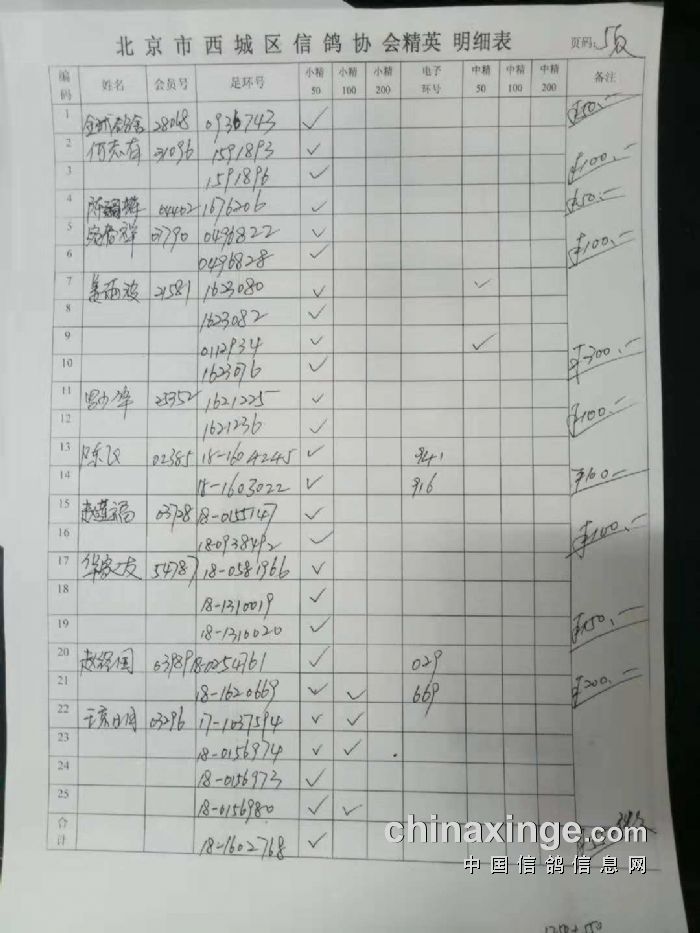 北京市西城区信鸽协会精英 明细表 页码:
编码 姓名 会员号 足环号 小精50 小精100 小精200 电子环号 中精50 中精100 中精200 备注
1 28068 0936743 ✓ ¥50.—
2 何志有 31096 1591893 ✓
3 1591896 ✓ ¥100.—
4 04402 1676206 ✓ ¥50.—
5 03790 0496822 ✓
6 0496828 ✓ ¥100.—
7 21581 1623080 ✓ ✓
8 1623082 ✓
9 0112934 ✓ ✓
10 1623076 ✓ ¥300.—
11 25352 1621225 ✓
12 1621236 ✓ ¥100.—
13 02385 18-1604245 ✓ 941
14 18-1603022 ✓ 916 ¥100—
15 03728 18-0155147 ✓
16 18-0938492 ✓ ¥100.—
17 华家之友 54787 18-0581966 ✓
18 18-1310019 ✓
19 18-1310020 ✓ ¥150.—
20 03989 18-0254761 ✓ 029
21 18-1620669 ✓ ✓ 669 ¥200.—
22 03296 17-1037594 ✓ ✓
23 18-0156974 ✓ ✓
24 18-0156973 ✓
25 18-0156980 ✓ ✓
合计 18-1602768 ✓
chinaxinge.com
中国信鸽信息网